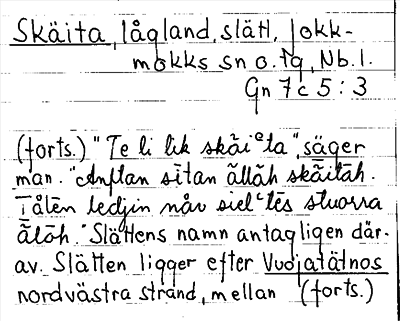 Skäita, lågland, slätt, Jokk-
mokks sn o. tg, Nb. l.
Gn 7 c 5 : 3
(forts.) "Te li lik skãiᵉta", säger
man. "Anftan sītan ãllāh skãitāh.
Tålēn ledjin nåv sielᵉtēs stuorra
ãlōh." Slättens namn antagligen där-
av. Slätten ligger efter Vuojatätnos
nordvästra strand, mellan (forts.)